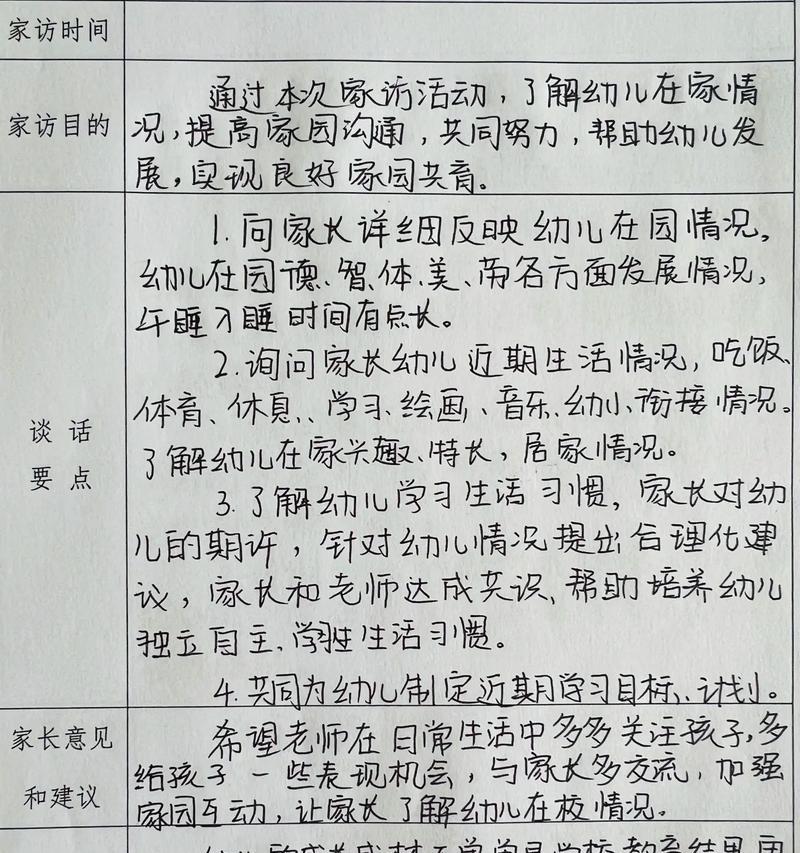 家访时间
家访目的
通过本次家访活动，了解幼儿在家情
况，提高家园沟通，共同努力，帮助幼儿发
展，实现良好家园共育。
谈话
要点
1.向家长详细反映幼儿在园情况。
幼儿在园德、智、体、美、劳各方面发展情况，
午睡入睡时间有点长。
2.询问家长幼儿近期生活情况，吃饭、
体育、休息、学习、绘画、音乐、幼小衔接情况。
了解幼儿在家兴趣、特长，居家情况。
3.了解幼儿学习生活习惯，家长对幼
儿的期许，针对幼儿情况提出合理化建
议，家长和老师达成共识、帮助培养幼儿
独立自主、学生生活习惯。
4.共同为幼儿制定近期学习目标、计划。
家长意见
和建议
希望老师在日常生活中多多关注孩子，多
给孩子一些表现机会，与家长多交流，加强
家园互动，让家长了解幼儿在校情况。